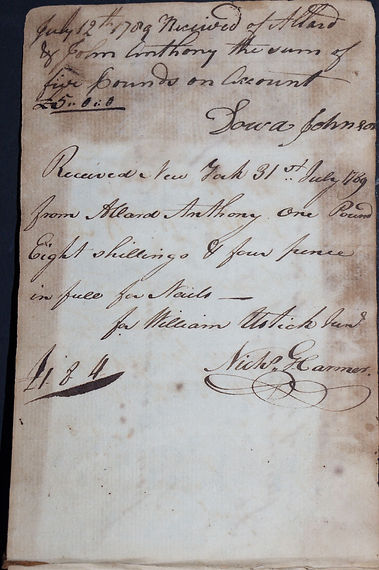 July 12th 1789 Received of Allard
& John Anthony the sum of
five pounds on Account
£5..0..0
Johnson
Received New York 31st July 1789
from Allard Anthony one Pound
Eight shillings & four pence
in full for Nails —
for William Ustick Junr
£1 8 4
Nichs. Harmer